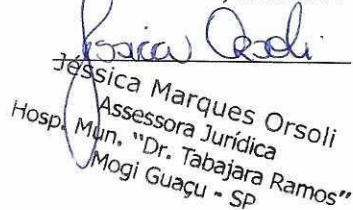 Jéssica Orsoli
Jéssica Marques Orsoli
Assessora Jurídica
Hosp. Mun. "Dr. Tabajara Ramos"
Mogi Guaçu - SP